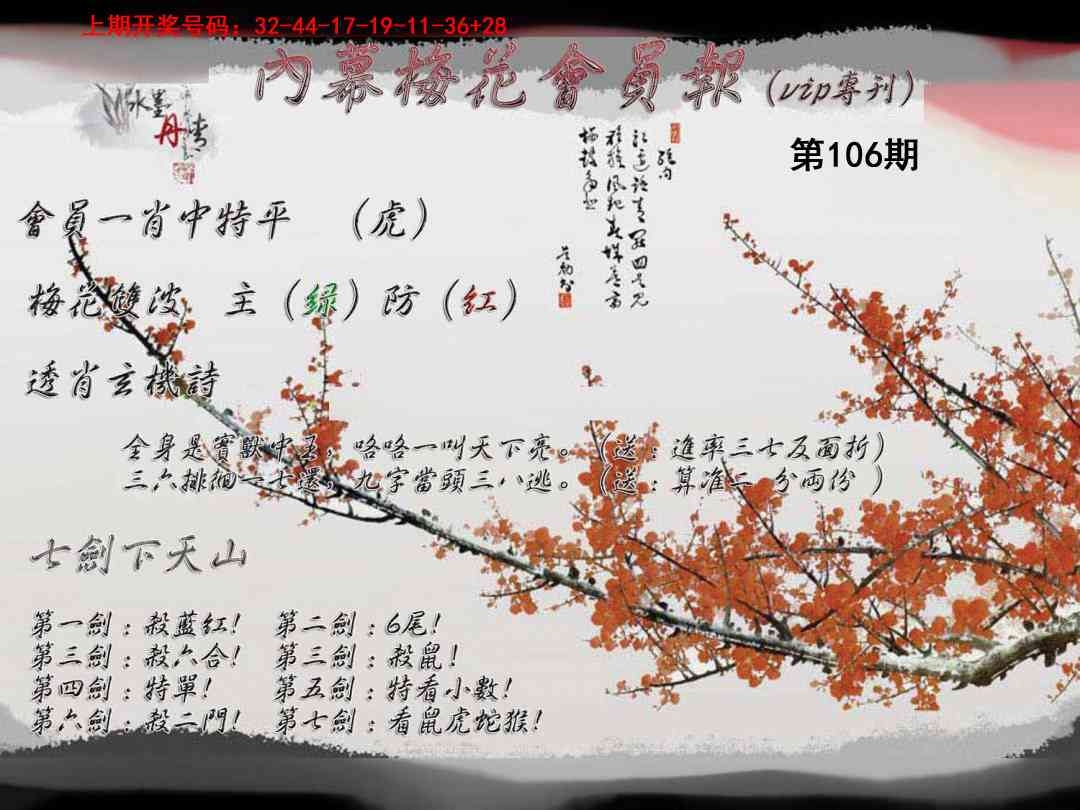 上期开奖号码：32-44-17-19-11-36+28
內幕梅花會員報（vip專刊）
水墨
丹青
第106期
會員一肖中特平　（虎）
梅花雙波　主（綠）防（紅）
透肖玄機詩
全身是寶獸中王，咯咯一叫天下亮。（送：進率三七反面折）
三六排徊一七還，九字當頭三八逃。（送：算准二 分兩份 ）
七劍下天山
第一劍：殺藍紅！ 第二劍：6尾！
第三劍：殺六合！ 第三劍：殺鼠！
第四劍：特單！ 第五劍：特看小數！
第六劍：殺二門！ 第七劍：看鼠虎蛇猴！